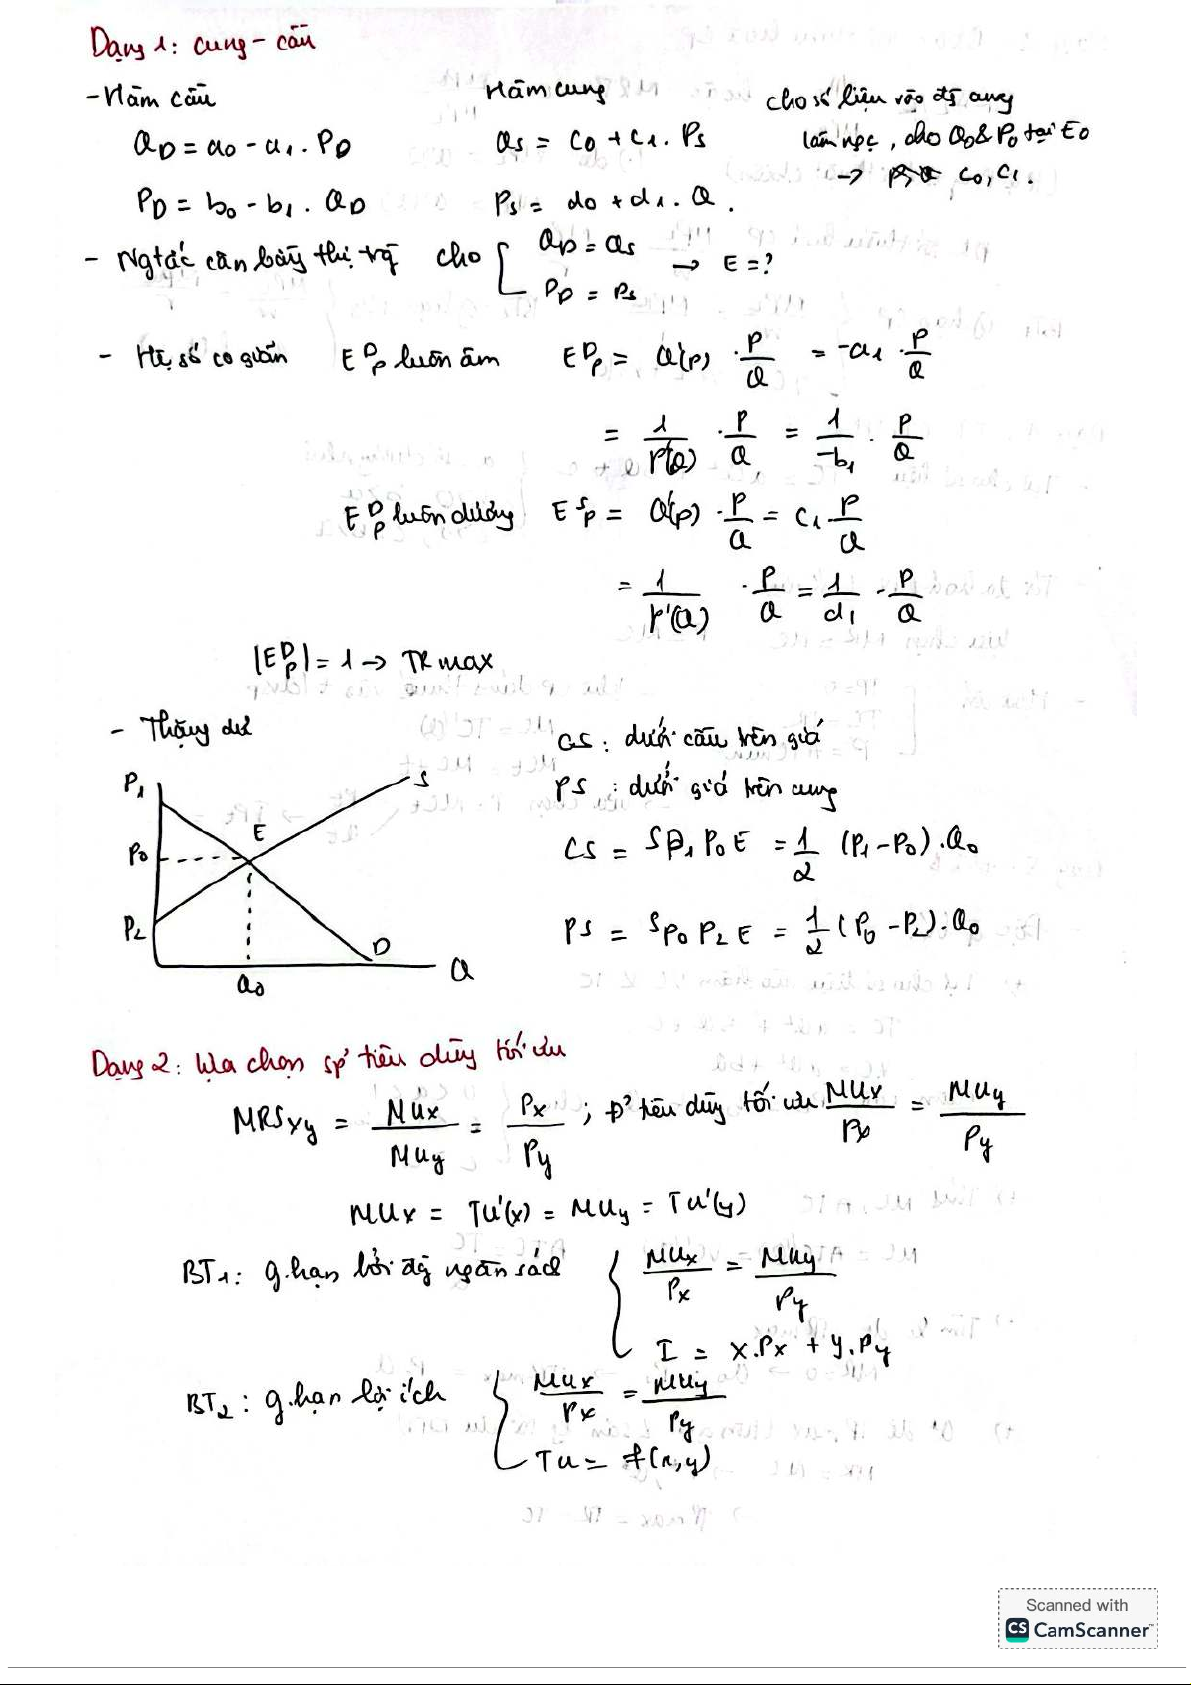 Dạng 1: Cung - cầu
- Hàm cầu Hàm cung cho số liệu vào đg cung
Q_D = a_0 - a_1 . P_D Q_S = c_0 + c_1 . P_S làm ngc, cho Q_0 & P_0 tại E_0
→ c_0, c_1.
P_D = b_0 - b_1 . Q_D P_S = d_0 + d_1 . Q .
- Ngtắc cân bằng thị trg cho { Q_D = Q_S → E = ?
P_D = P_S
- Hệ số co giãn E^D_P luôn âm E^D_P = Q'(P) . P/Q = -a_1 . P/Q
= 1/P'(Q) . P/Q = 1/-b_1 . P/Q
E^D_P luôn dương E^S_P = Q'(P) . P/Q = c_1 . P/Q
= 1/P'(Q) . P/Q = 1/d_1 . P/Q
|E^D_P| = 1 → TR max
- Thặng dư CS : dưới cầu trên giá
P_1 S PS : dưới giá trên cung
E
P_0 CS = S P_1 P_0 E = 1/2 (P_1 - P_0) . Q_0
P_2 D PS = S P_0 P_2 E = 1/2 (P_0 - P_2) . Q_0
Q_0 Q
Dạng 2: Lựa chọn sp tiêu dùng tối ưu
MRS_xy = MU_x/MU_y = P_x/P_y ; Đ² tiêu dùng tối ưu MU_x/P_x = MU_y/P_y
MU_x = TU'(x) = MU_y = TU'(y)
BT_1 : g.hạn bởi đg ngân sách { MU_x/P_x = MU_y/P_y
I = x.P_x + y.P_y
BT_2 : g.hạn lợi ích { MU_x/P_x = MU_y/P_y
TU = f(x,y)
Scanned with
CS CamScanner